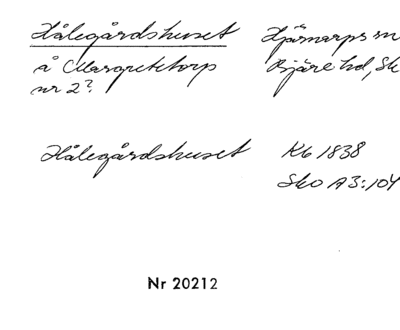 Hålegårdshuset Hjärnarps sn
å Margretetorp Bjäre hd, Sk
nr 2?
Hålegårdshuset Kb 1838
Sko A3:104
Nr 20212